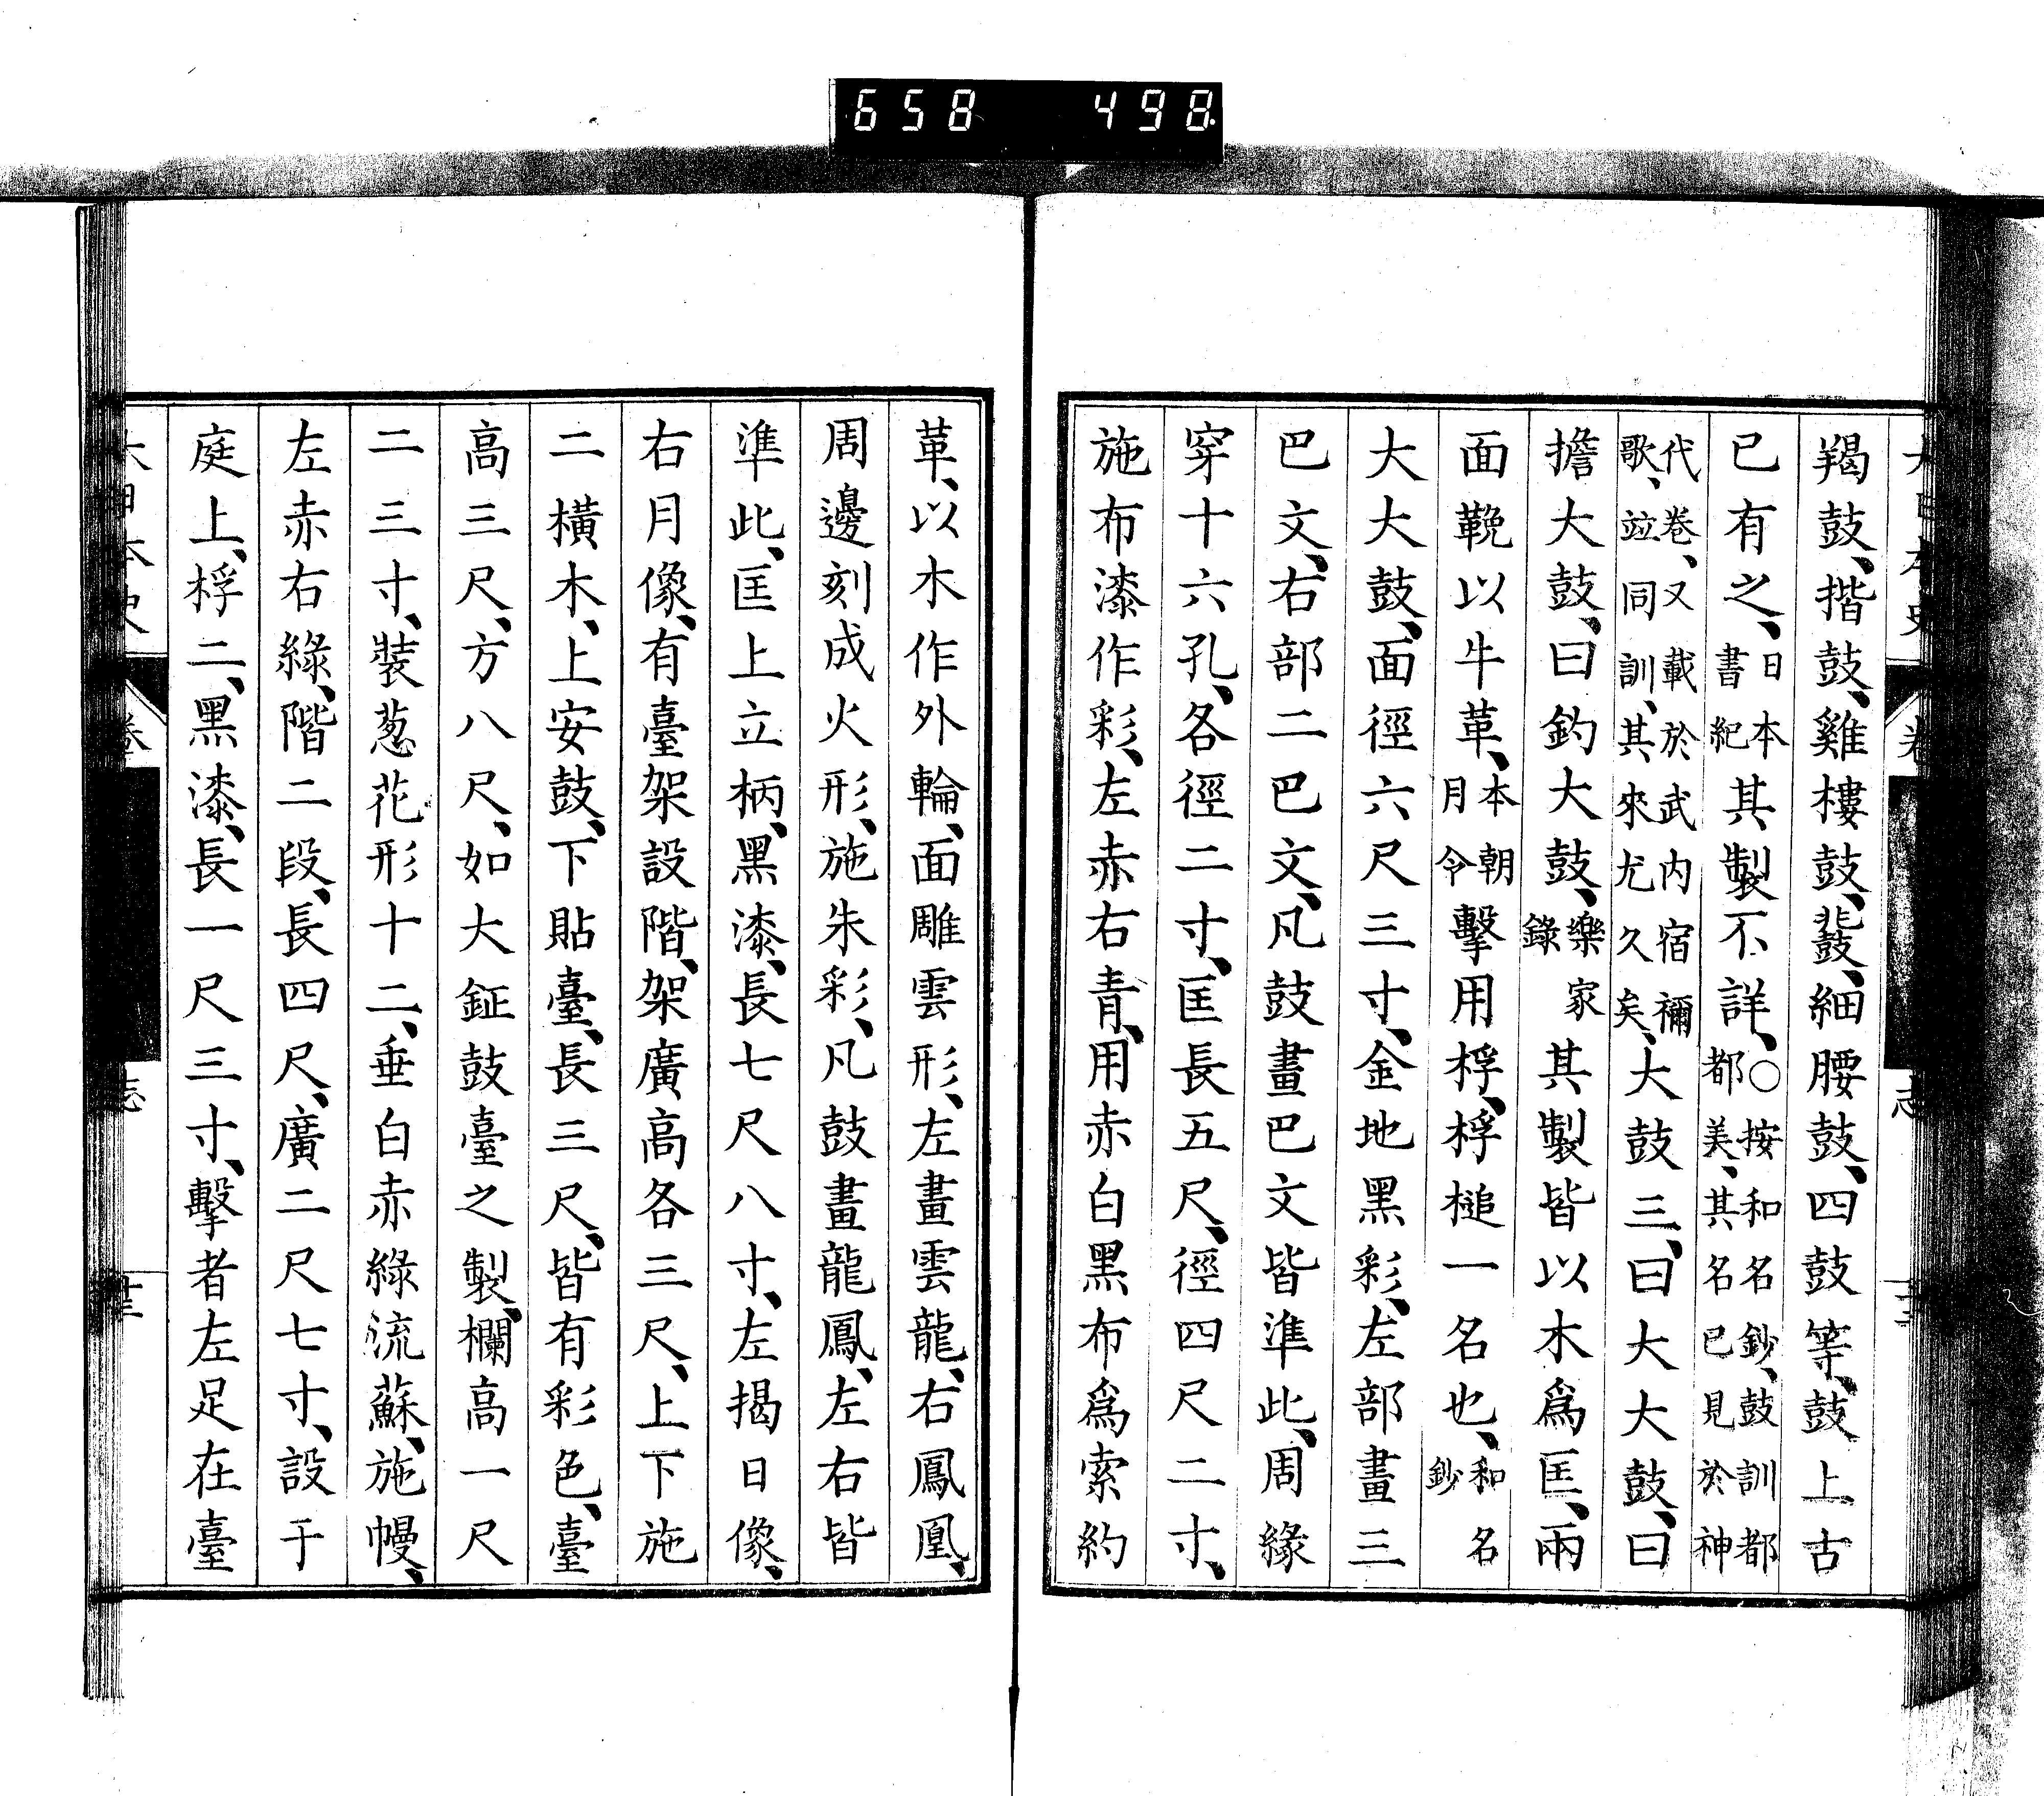 658 498
羯鼓、揩鼓、雞樓鼓、鼗鼓、細腰鼓、四鼓等、鼓上古
已有之、日本書紀其製不詳、○按和名鈔、鼓訓都都美、其名已見於神
代卷、又載於武內宿禰歌、竝同訓、其來尤久矣、大鼓三、曰大大鼓、曰
擔大鼓、曰釣大鼓、樂家錄其製皆以木爲匡、兩
面鞔以牛革、本朝月令擊用桴、桴槌一名也、和名鈔
大大鼓、面徑六尺三寸、金地黑彩、左部畫三
巴文、右部二巴文、凡鼓畫巴文皆準此、周緣
穿十六孔、各徑二寸、匡長五尺、徑四尺二寸、
施布漆作彩、左赤右青、用赤白黑布爲索約
革、以木作外輪、面雕雲形、左畫雲龍、右鳳凰、
周邊刻成火形、施朱彩、凡鼓畫龍鳳、左右皆
準此、匡上立柄、黑漆、長七尺八寸、左揭日像、
右月像、有臺架設階、架廣高各三尺、上下施
二橫木、上安鼓、下貼臺、長三尺、皆有彩色、臺
高三尺、方八尺、如大鉦鼓臺之製、欄高一尺
二三寸、裝葱花形十二、垂白赤綠流蘇、施幔、
左赤右綠、階二段、長四尺、廣二尺七寸、設于
庭上、桴二、黑漆、長一尺三寸、擊者左足在臺